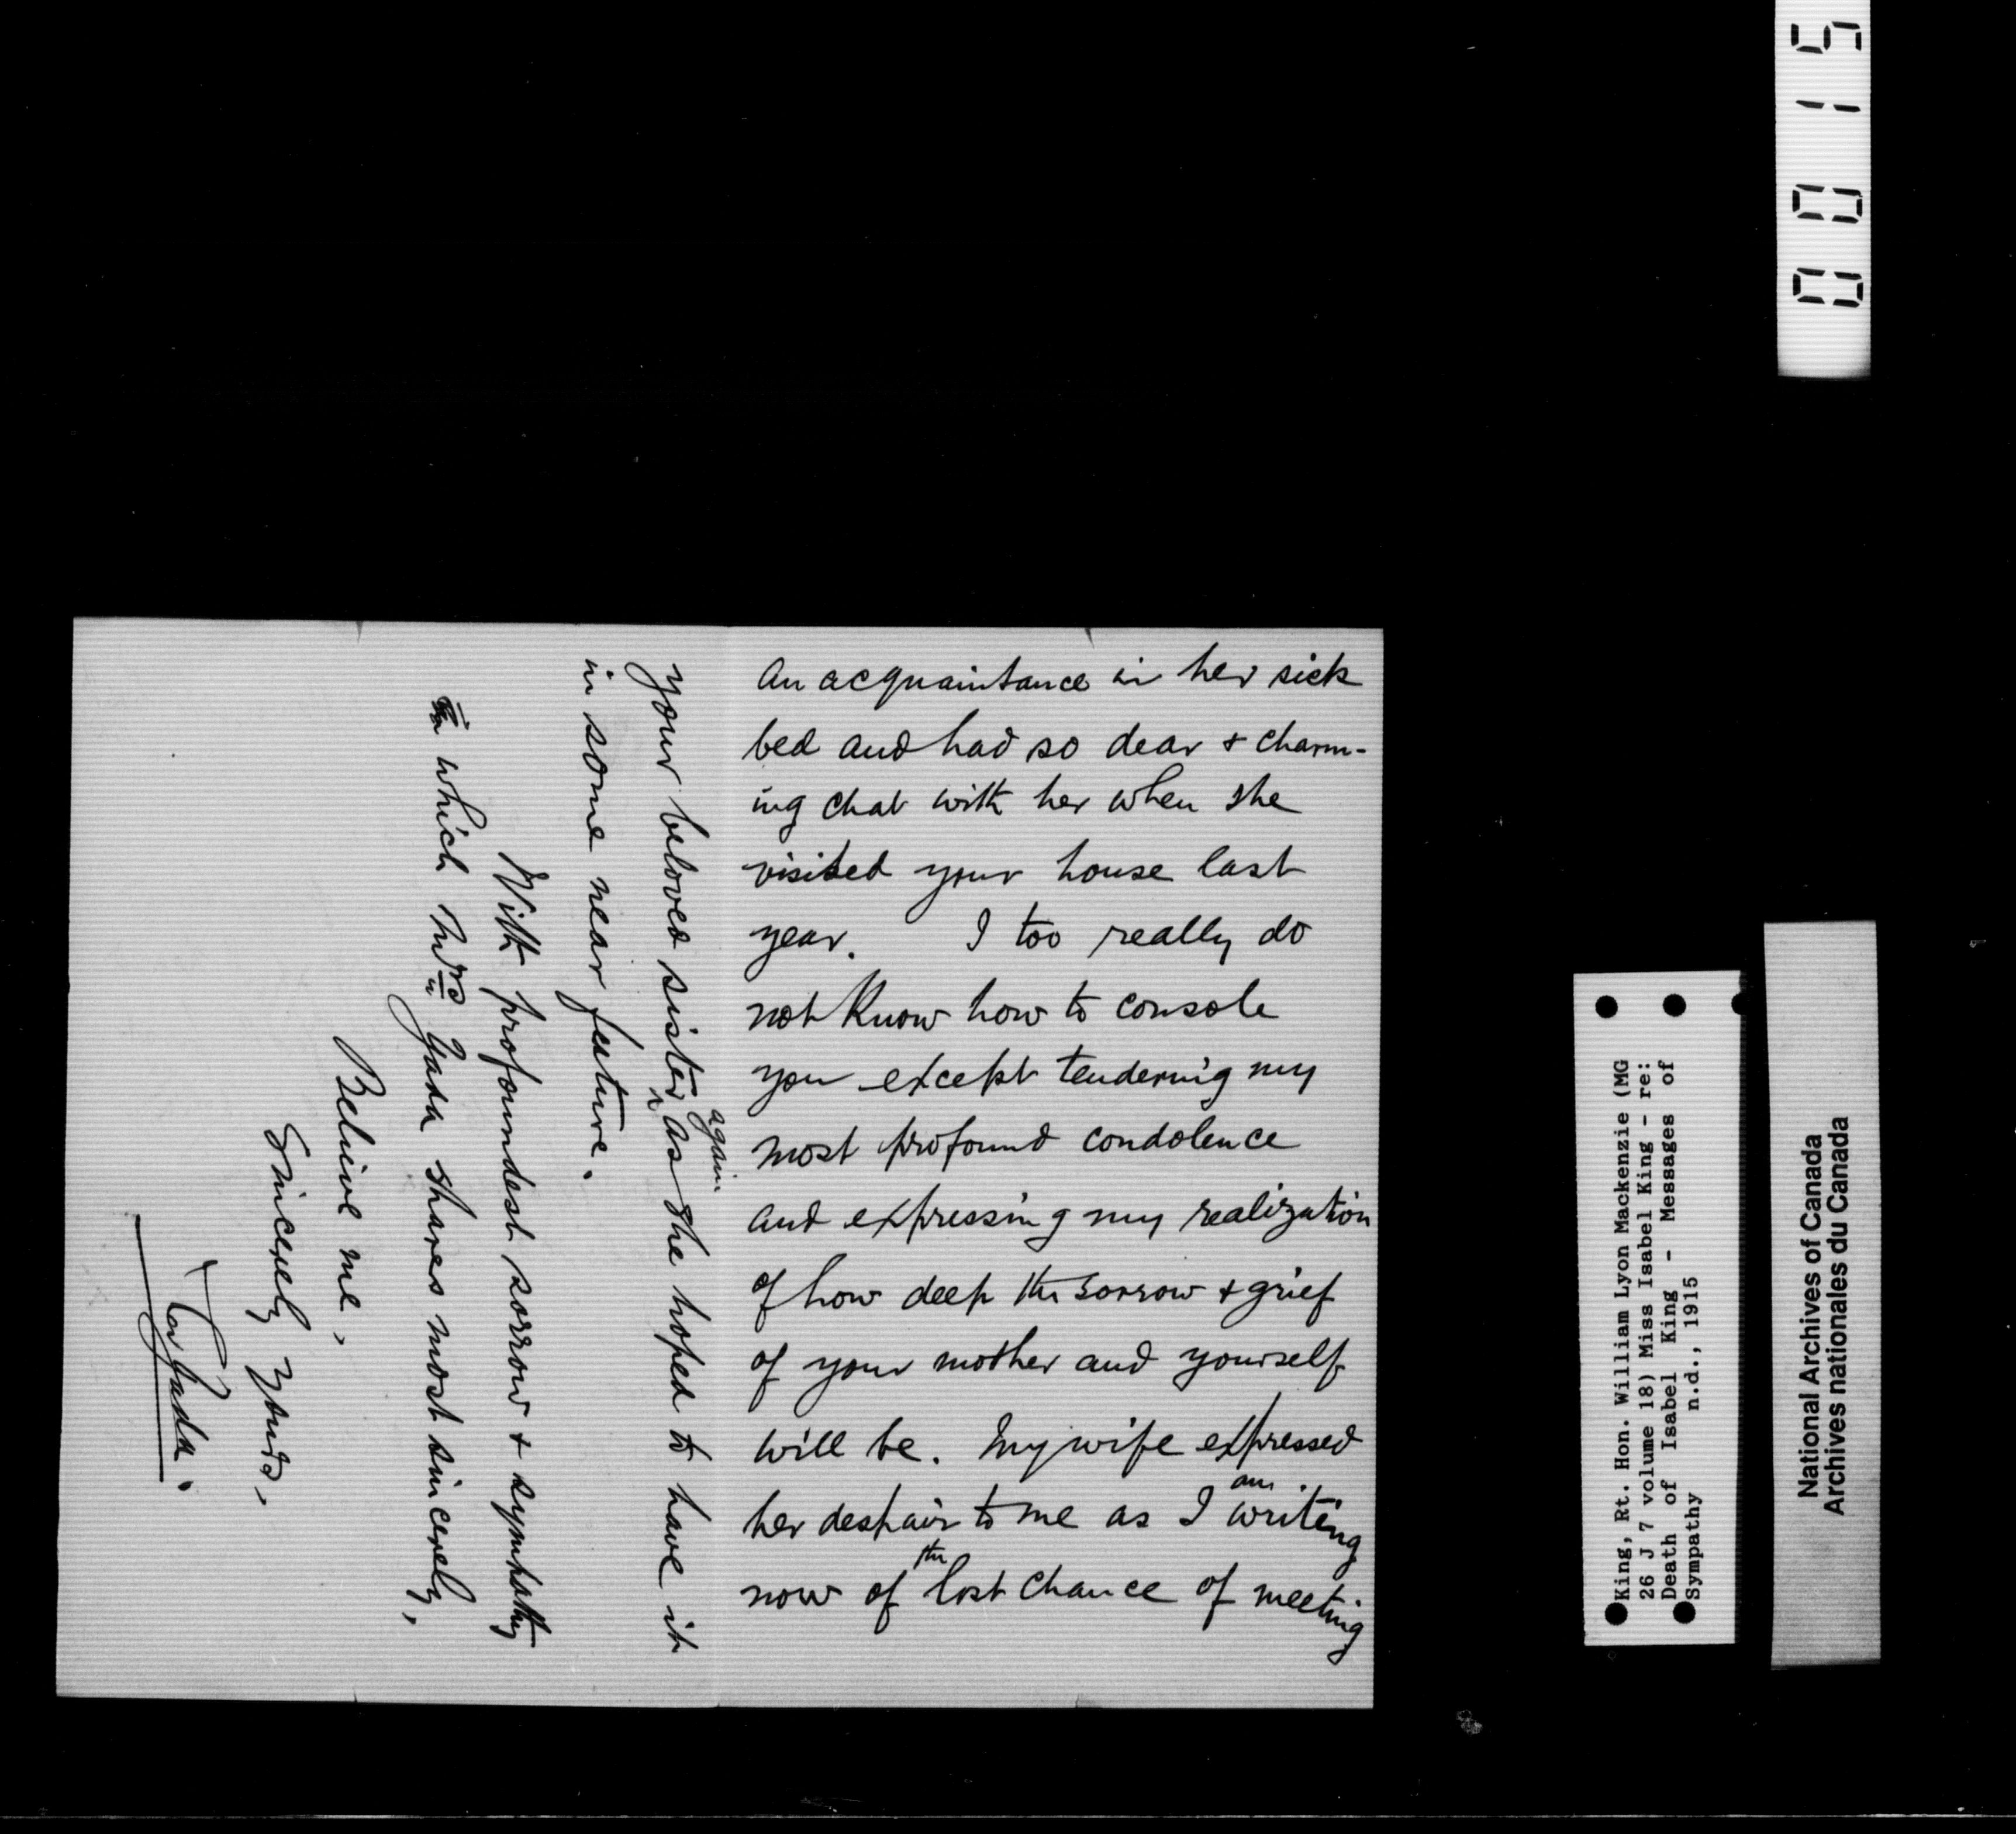 An acquaintance in her sick
bed and had so dear & charm-
ing chat with her when she
visited your house last
year. I too really do
not know how to console
you except tendering my
most profound condolence
and expressing my realization
of how deep the sorrow & grief
of your mother and yourself
will be. My wife expressed
her despair to me as I am writing
now of the lost chance of meeting
your beloved sister again as she hoped to have it
in some near future.
With profoundest sorrow & sympathy
in which Mrs Yada shares most sincerely,
Believe me,
Sincerely yours,
Yada.
0015
King, Rt. Hon. William Lyon Mackenzie (MG
26 J 7 volume 18) Miss Isabel King - re:
Death of Isabel King - Messages of
Sympathy n.d., 1915
National Archives of Canada
Archives nationales du Canada